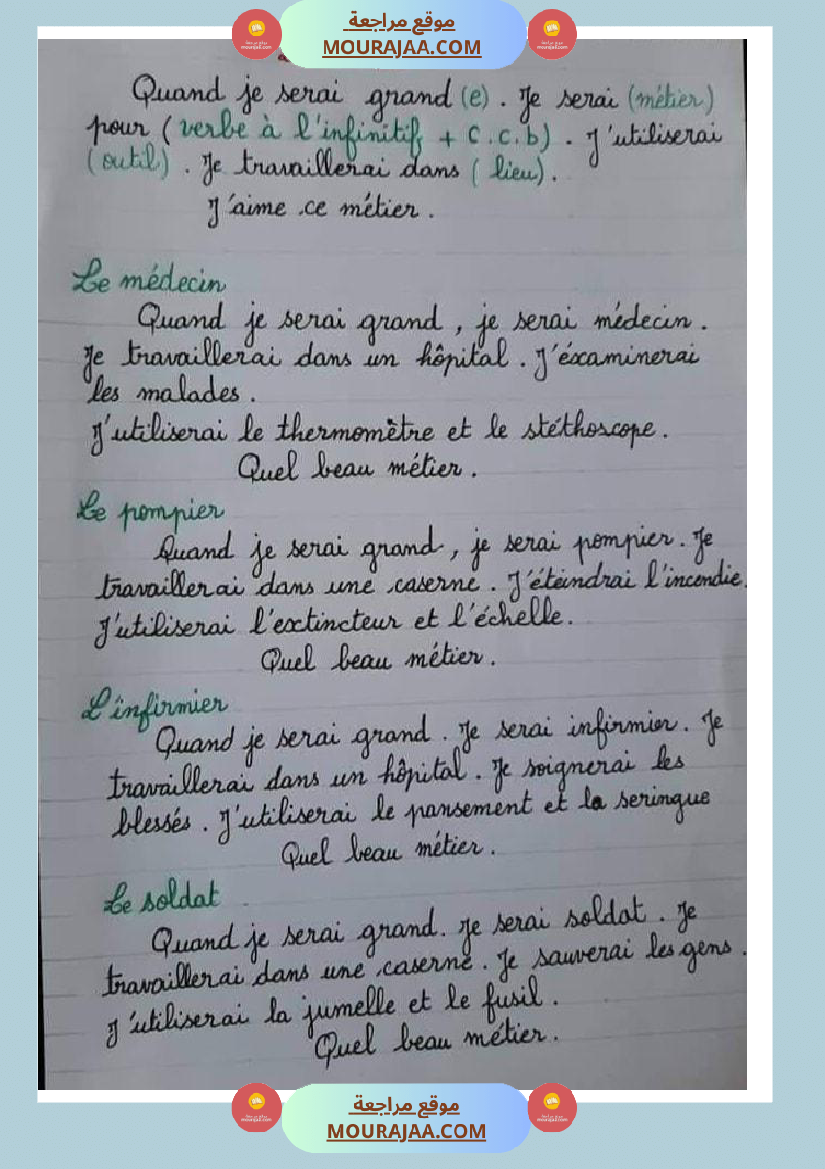 موقع مراجعة
MOURAJAA.COM
Quand je serai grand (e). Je serai (métier)
pour ( verbe à l'infinitif + C.C.b). J'utiliserai
(outil). Je travaillerai dans ( lieu).
J'aime ce métier.
Le médecin
Quand je serai grand, je serai médecin.
Je travaillerai dans un hôpital. J'éxaminerai
les malades.
J'utiliserai le thermomètre et le stéthoscope.
Quel beau métier.
Le pompier
Quand je serai grand, je serai pompier. Je
travaillerai dans une caserne. J'éteindrai l'incendie.
J'utiliserai l'extincteur et l'échelle.
Quel beau métier.
L'infirmier
Quand je serai grand. Je serai infirmier. Je
travaillerai dans un hôpital. Je soignerai les
blessés. J'utiliserai le pansement et la seringue
Quel beau métier.
Le soldat
Quand je serai grand. Je serai soldat. Je
travaillerai dans une caserne. Je sauverai les gens.
J'utiliserai la jumelle et le fusil.
Quel beau métier.
موقع مراجعة
MOURAJAA.COM